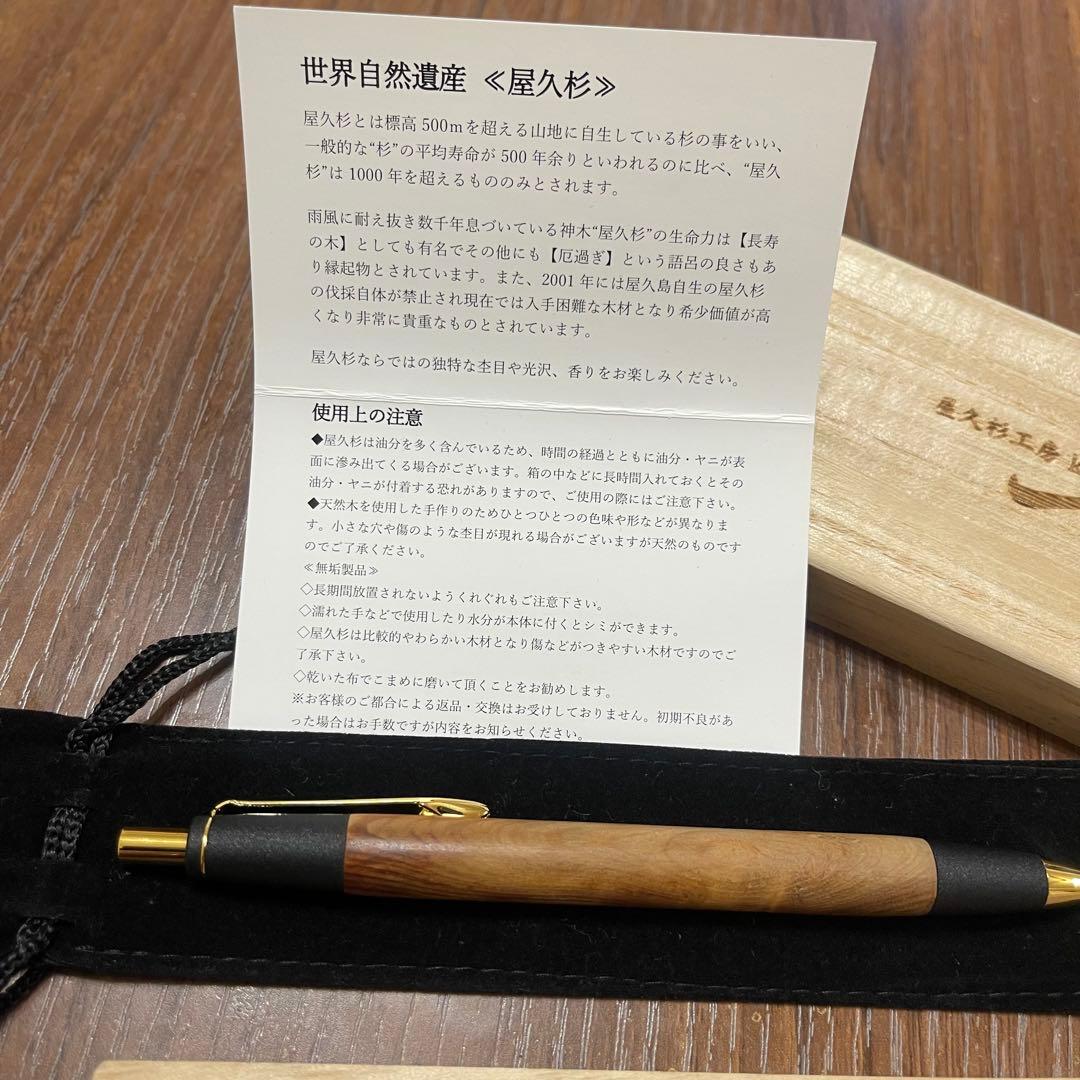 世界自然遺産 ≪屋久杉≫
屋久杉とは標高500mを超える山地に自生している杉の事をいい、
一般的な“杉”の平均寿命が500年余りといわれるのに比べ、“屋久
杉”は1000年を超えるもののみとされます。
雨風に耐え抜き数千年息づいている神木“屋久杉”の生命力は【長寿
の木】としても有名でその他にも【厄過ぎ】という語呂の良さもあ
り縁起物とされています。また、2001年には屋久島自生の屋久杉
の伐採自体が禁止され現在では入手困難な木材となり希少価値が高
くなり非常に貴重なものとされています。
屋久杉ならではの独特な杢目や光沢、香りをお楽しみください。
使用上の注意
◆屋久杉は油分を多く含んでいるため、時間の経過とともに油分・ヤニが表
面に滲み出てくる場合がございます。箱の中などに長時間入れておくとその
油分・ヤニが付着する恐れがありますので、ご使用の際にはご注意下さい。
◆天然木を使用した手作りのためひとつひとつの色味や形などが異なりま
す。小さな穴や傷のような杢目が現れる場合がございますが天然のものです
のでご了承ください。
≪無垢製品≫
◇長期間放置されないようくれぐれもご注意下さい。
◇濡れた手などで使用したり水分が本体に付くとシミができます。
◇屋久杉は比較的やわらかい木材となり傷などがつきやすい木材ですのでご
了承下さい。
◇乾いた布でこまめに磨いて頂くことをお勧めします。
※お客様のご都合による返品・交換はお受けしておりません。初期不良があ
った場合はお手数ですが内容をお知らせください。
屋久杉工房